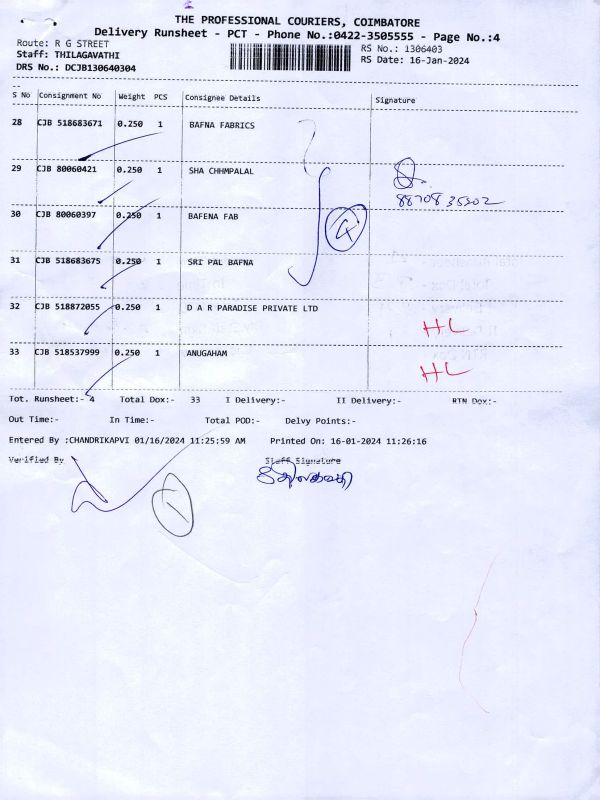 THE PROFESSIONAL COURIERS, COIMBATORE
Delivery Runsheet - PCT - Phone No.:0422-3505555 - Page No.:4
Route: R G STREET
RS No.: 1306403
Staff: THILAGAVATHI
RS Date: 16-Jan-2024
DRS No.: DCJB130640304
S No Consignment No Weight PCS Consignee Details Signature
28 CJB 518683671 0.250 1 BAFNA FABRICS
29 CJB 80060421 0.250 1 SHA CHHMPALAL
88708 35302
30 CJB 80060397 0.250 1 BAFENA FAB
4
31 CJB 518683675 0.250 1 SRI PAL BAFNA
32 CJB 518872055 0.250 1 D A R PARADISE PRIVATE LTD
HL
33 CJB 518537999 0.250 1 ANUGAHAM
HL
Tot. Runsheet:- 4 Total Dox:- 33 I Delivery:- II Delivery:- RTN Dox:-
Out Time:- In Time:- Total POD:- Delvy Points:-
Entered By :CHANDRIKAPVI 01/16/2024 11:25:59 AM Printed On: 16-01-2024 11:26:16
Verified By Staff Signature